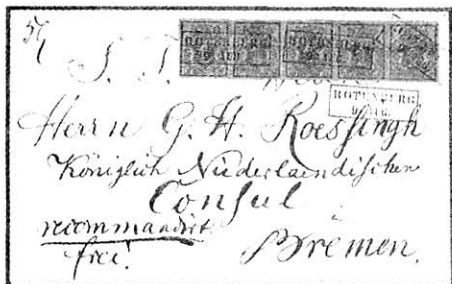 S. T.
ROTENBURG
Herrn G. H. Roessingh
Königlich Niederlaendischen
Consul
recommandirt
frei!
Bremen.